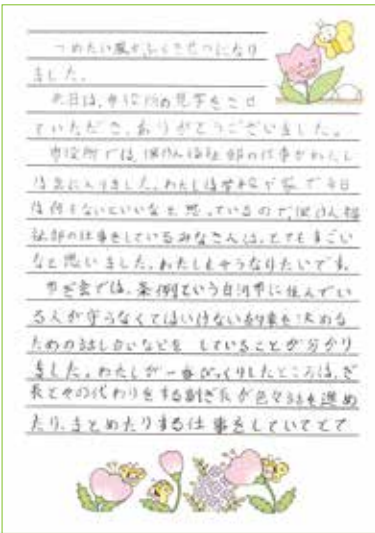 つめたい風がふくきせつになり
ました。
先日は、市役所の見学をさせ
ていただき、ありがとうございました。
市役所では、保けん福祉部の仕事がわたし
は気に入りました。わたしは学校や家で今日
は何もないといいなと思っているので、保けん福
祉部の仕事をしているみなさんは、とてもすごい
なと思いました。わたしもそうなりたいです。
市ぎ会では、条例という白河市に住んでい
る人が守らなくてはいけない約束を決める
ための話し合いなどを していることが分かり
ました。わたしが一番びっくりしたところは、ぎ
長とその代わりをする副ぎ長が色々な話を進め
たり、まとめたりする仕事をしていてとて